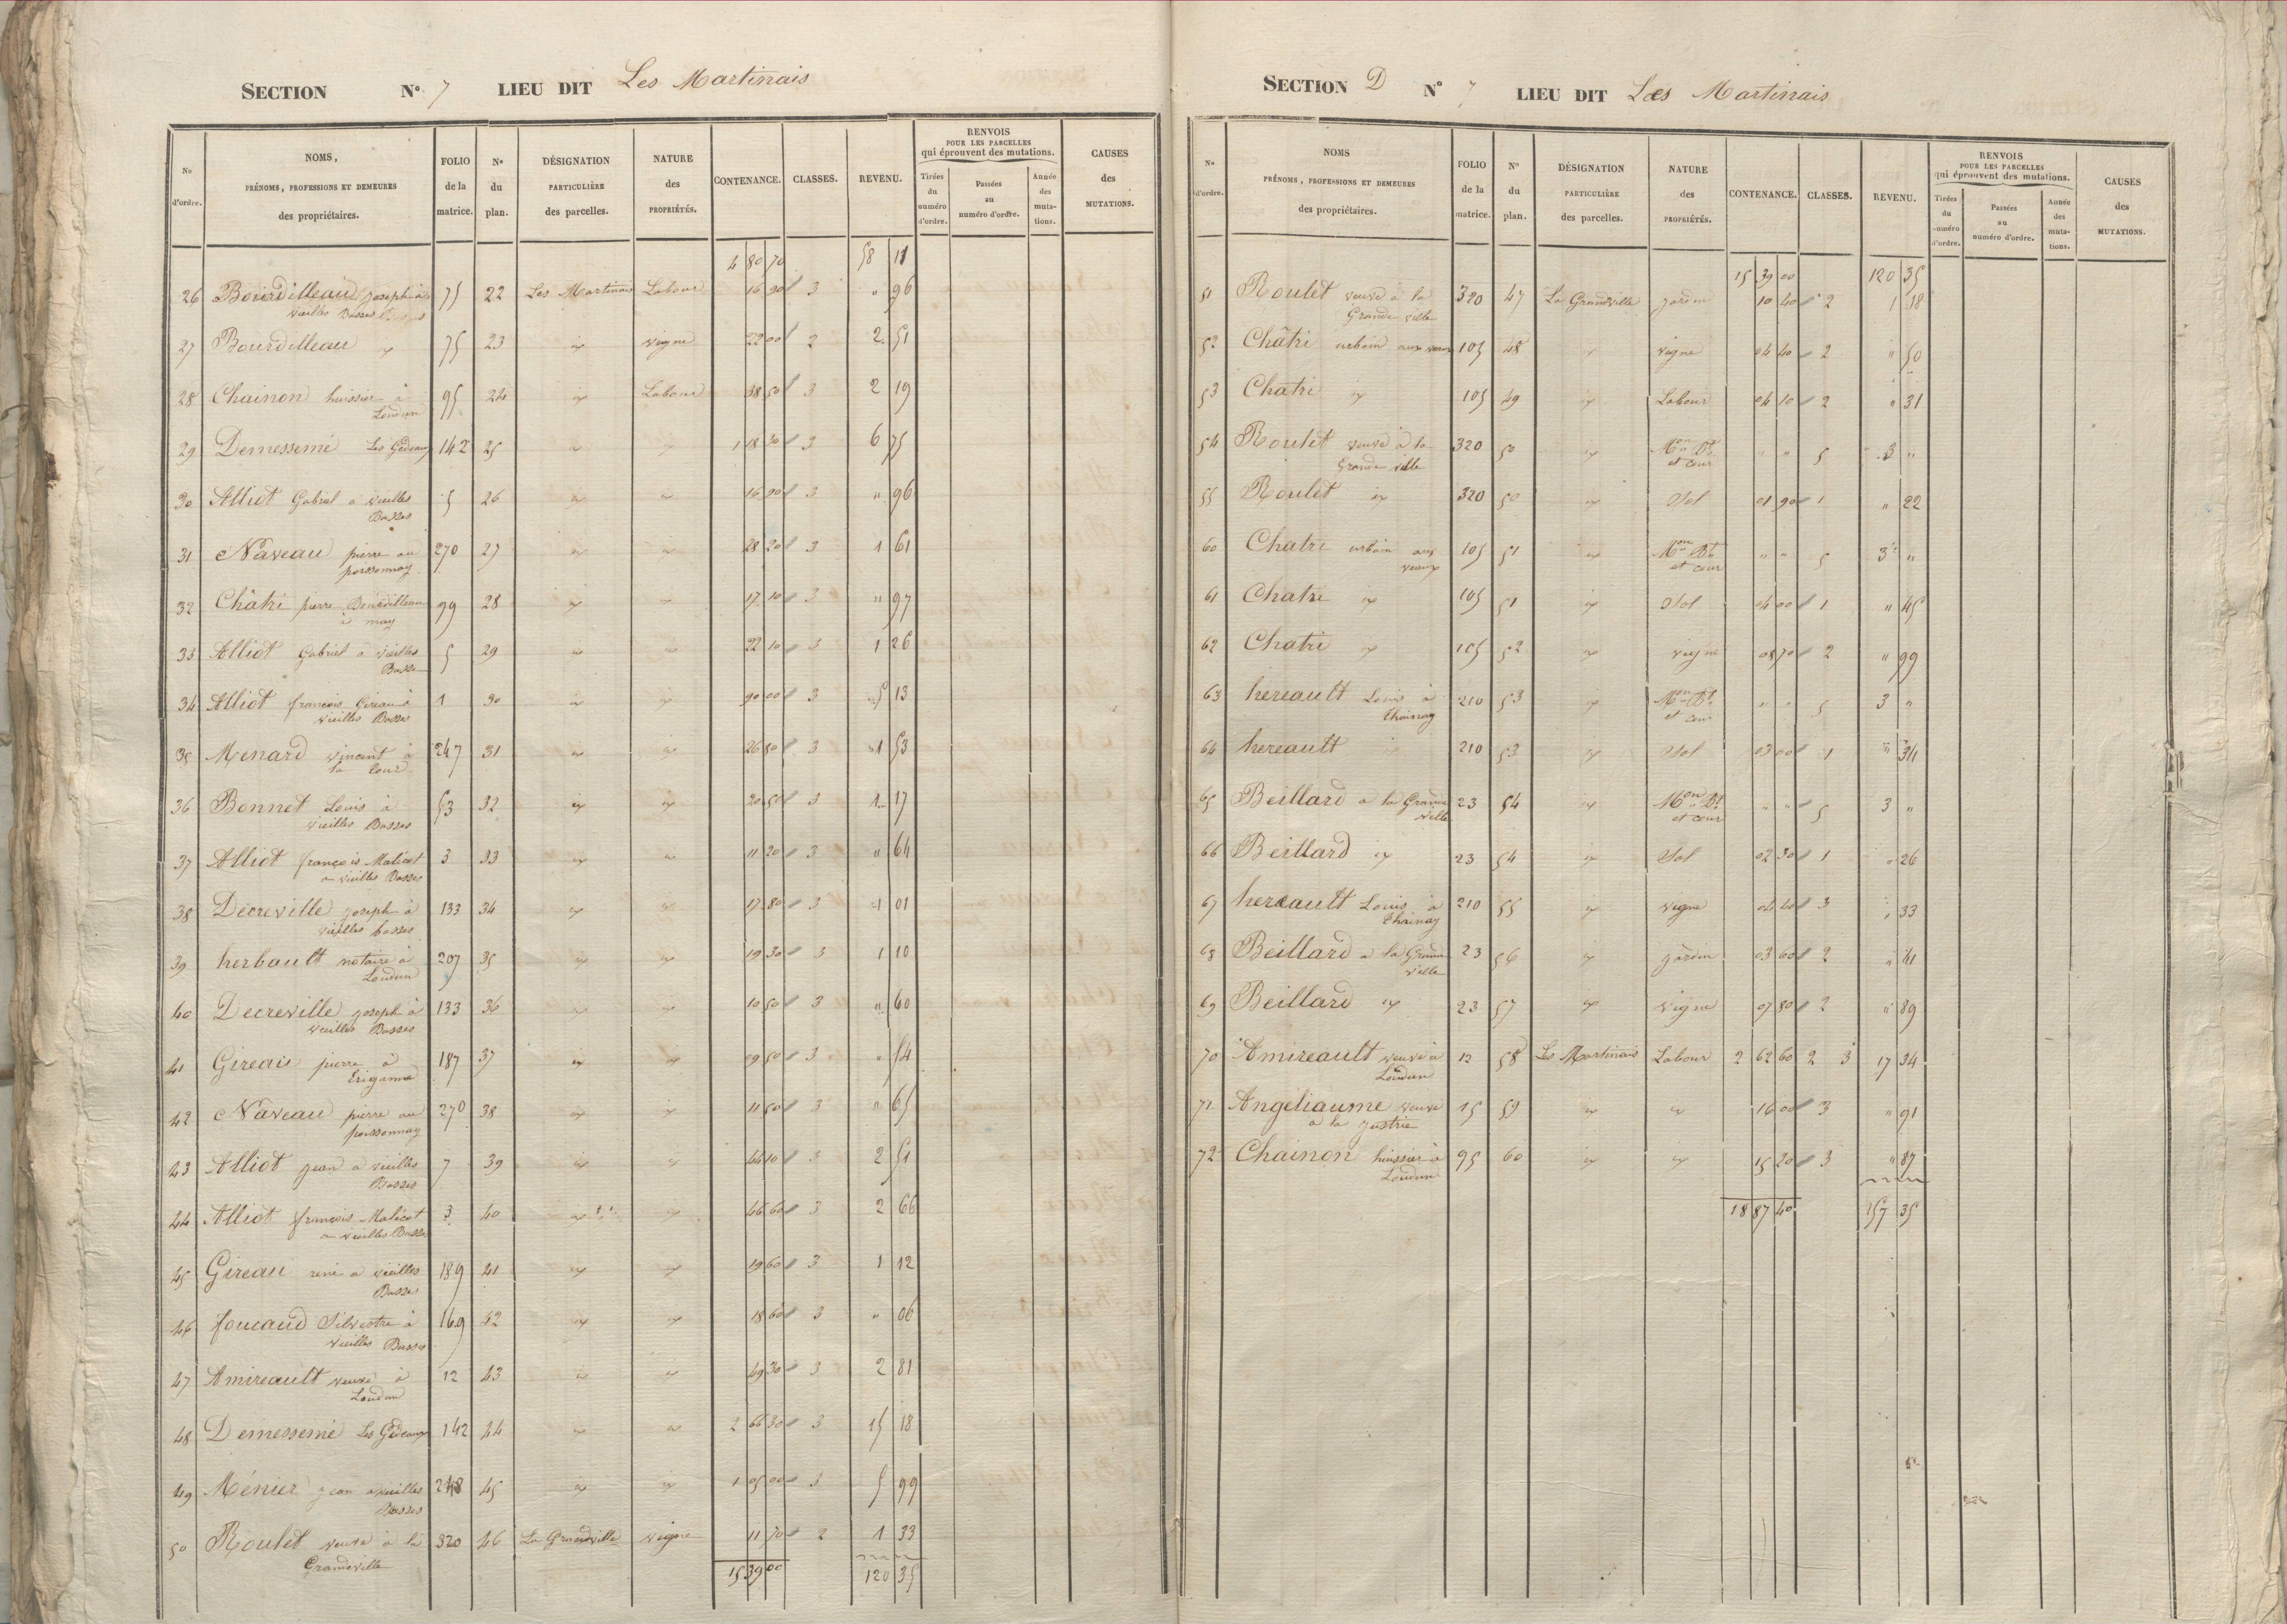 SECTION N° 7 LIEU DIT Les Martinais
N° d'ordre. NOMS, PRÉNOMS, PROFESSIONS ET DEMEURES des propriétaires. FOLIO de la matrice. N° du plan. DÉSIGNATION PARTICULIÈRE des parcelles. NATURE des PROPRIÉTÉS. CONTENANCE. CLASSES. REVENU. RENVOIS POUR LES PARCELLES qui éprouvent des mutations. Tirées du numéro d'ordre. Passées au numéro d'ordre. Année des mutations. CAUSES des MUTATIONS.
4 80 70 58 11
26 Bourdilleau joseph à 75 22 Les Martinais Labour 16 90 3 " 96
vieilles Basses
27 Bourdilleau 75 23 vigne 22 00 2 2 51
28 Chainon huissier à 95 24 Labour 38 50 3 2 19
Loudun
29 Demessemé Les Gédeaux 142 25 1 18 30 3 6 75
30 Alliot Gabriel a vieilles 5 26 16 90 3 " 96
Basses
31 Naveau pierre au 270 27 28 20 3 1 61
poissonnay
32 Châtri pierre Bourdilleau 99 28 17 10 3 " 97
à may
33 Alliot Gabriel a vieilles 5 29 22 10 3 1 26
Basses
34 Alliot francois Gireau à 1 30 90 00 3 5 13
vieilles Basses
35 Menard vincent à 247 31 26 80 3 1 53
la Cour
36 Bonnet Louis à 53 32 20 50 3 1 17
vieilles Basses
37 Alliot françois Malicot 3 33 11 20 3 " 64
a vieilles Basses
38 Decreville joseph à 133 34 17 80 3 1 01
vieilles basses
39 herbault notaire à 207 35 19 30 3 1 10
Loudun
40 Decreville joseph à 133 36 10 50 3 " 60
vieilles Basses
41 Gireau pierre à 187 37 09 50 3 " 54
42 Naveau pierre au 270 38 11 50 3 " 65
poissonnay
43 Alliot jean a vieilles 7 39 44 10 3 2 51
Basses
44 Alliot françois Malicot 3 40 46 60 3 2 66
a vieilles Basses
45 Gireau rené a vieilles 189 41 19 60 3 1 12
Basses
46 foucaud Silvestre à 169 42 18 60 3 " 06
vieilles Basses
47 Amireault veuve à 12 43 49 30 3 2 81
Loudun
48 Demessemé Les Gédeaux 142 44 2 66 30 3 15 18
49 Ménier jean a vieilles 248 45 1 05 00 3 5 99
Basses
50 Roulet veuve à la 320 46 La Grandville vigne 11 70 2 1 33
Grandeville
15 39 00 120 35
SECTION D N° 7 LIEU DIT Les Martinais
N° d'ordre. NOMS PRÉNOMS, PROFESSIONS ET DEMEURES des propriétaires. FOLIO de la matrice. N° du plan. DÉSIGNATION PARTICULIÈRE des parcelles. NATURE des PROPRIÉTÉS. CONTENANCE. CLASSES. REVENU. RENVOIS POUR LES PARCELLES qui éprouvent des mutations. Tirées du numéro d'ordre. Passées au numéro d'ordre. Année des mutations. CAUSES des MUTATIONS.
15 39 00 120 35
51 Roulet veuve à la 320 47 La Grandville jardin 10 40 2 1 18
Grande ville
52 Châtri urbain aux veaux 105 48 vigne 04 40 2 " 50
53 Chatri 105 49 Labour 04 10 2 " 31
54 Roulet veuve à la 320 50 Mon Bt et cour " " 5 3 "
Grande ville
55 Roulet 320 50 Sol 01 90 1 " 22
60 Chatri urbain aux 105 51 Mon Bt et cour " " 5 3 "
veaux
61 Chatri 105 51 Sol 04 00 1 " 45
62 Chatri 105 52 vigne 08 70 2 " 99
63 hereault Louis à 210 53 Mon Bt et cour " " 5 3 "
Thainay
64 hereault 210 53 Sol 03 00 1 " 34
65 Beillard a la Grande 23 54 Mon Bt et cour " " 5 3 "
ville
66 Beillard 23 54 Sol 02 30 1 " 26
67 hereault Louis à 210 55 vigne 04 40 3 " 33
Thainay
68 Beillard a la Grande 23 56 jardin 03 60 2 " 41
ville
69 Beillard 23 57 vigne 07 80 2 " 89
70 Amireault veuve à 12 58 Les Martinais Labour 2 62 60 2 3 17 34
Loudun
71 Angeliaume veuve 15 59 16 00 3 " 91
a la justrie
72 Chainon huissier à 95 60 15 20 3 " 87
Loudun
18 87 40 157 35